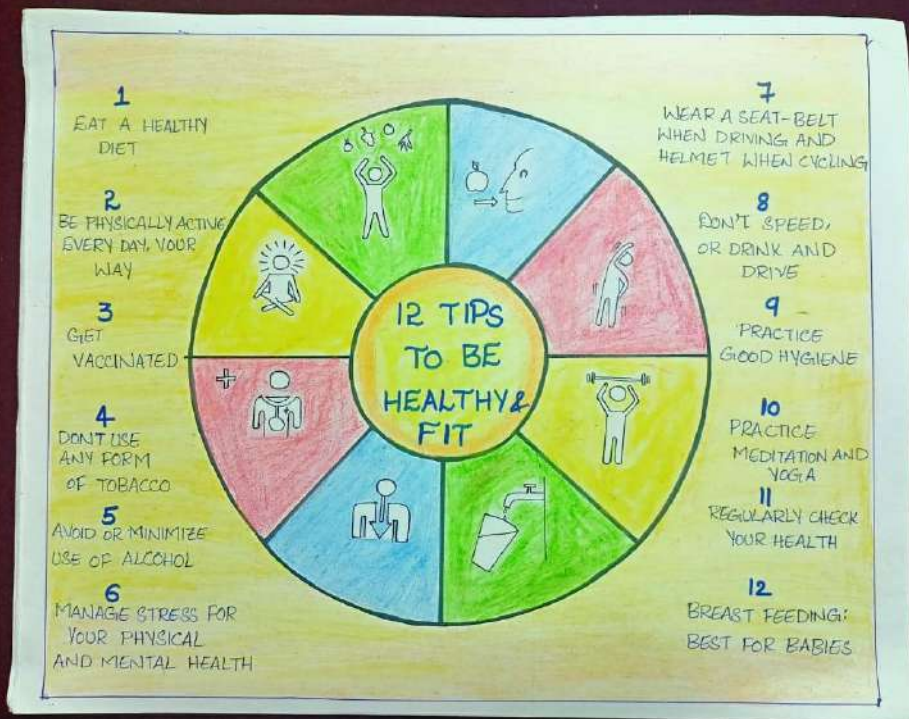 1
EAT A HEALTHY
DIET
2
BE PHYSICALLY ACTIVE
EVERY DAY, YOUR
WAY
3
GET
VACCINATED
4
DONT USE
ANY FORM
OF TOBACCO
5
AVOID OR MINIMIZE
USE OF ALCOHOL
6
MANAGE STRESS FOR
YOUR PHYSICAL
AND MENTAL HEALTH
12 TIPS
TO BE
HEALTHY &
FIT
7
WEAR A SEAT-BELT
WHEN DRIVING AND
HELMET WHEN CYCLING
8
DON'T SPEED,
OR DRINK AND
DRIVE
9
PRACTICE
GOOD HYGIENE
10
PRACTICE
MEDITATION AND
YOGA
11
REGULARLY CHECK
YOUR HEALTH
12
BREAST FEEDING:
BEST FOR BABIES